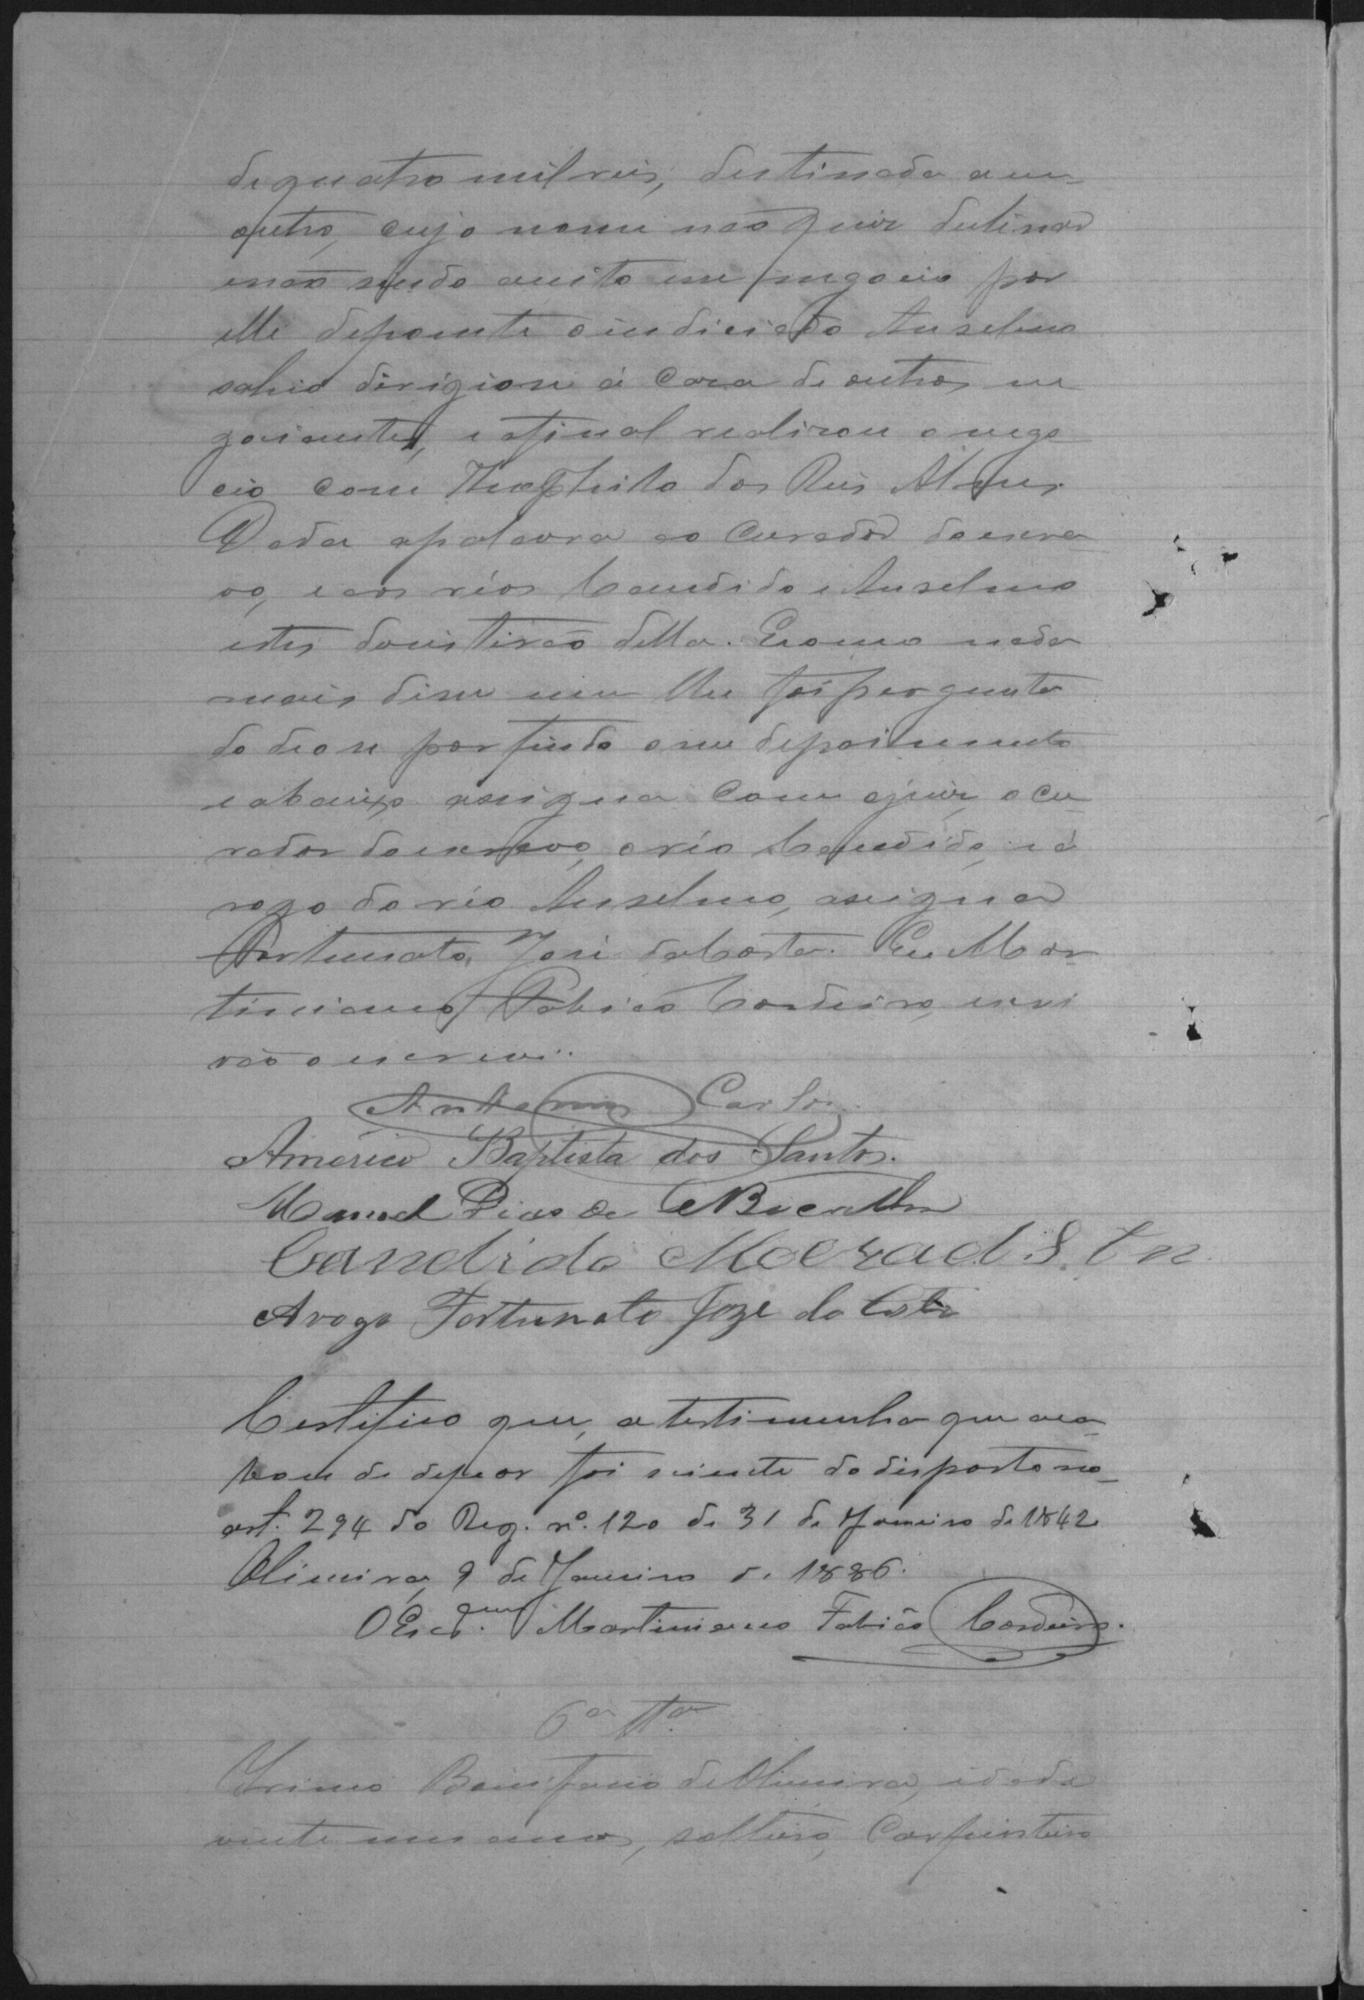 de quatro mil reis, destinada a um
outro, cujo nome não quiz declinar
e não sendo aceito esse negocio por
elle depoente o indiciado Anselmo
sahio dirigiose á casa de outros ne
gociantes, e afinal realisou o nego
cio com Theophilo dos Reis Alves.
Dada a palavra ao Curador do escra
vo, e aos réos Candido e Anselmo
estes desistirão della. E como nada
mais disse nem lhe foi pergunta
do deose por findo o seu depoimento
e abaixo assigna com o juiz, o cu
rador do escravo, o réo Candido, e á
rogo do réo Anselmo, assigna
Fortunato José da Costa. Eu Mar
tiniano Fabião Cordeiro, escri
vão o escrevi.
Antonio Carlos
Américo Baptista dos Santos.
Manoel Dias de
Candido
Arogo Fortunato Joze da Costa
Certifico que, a testimunha que aca
bou de depor foi sciente do disposto no
art. 294 do Reg. nº. 120 de 31 de Janeiro de 1842
Oliveira, 9 de Janeiro de 1886.
O Escr.am Martiniano Fabião Cordeiro.
6a Tta
Irineo Bonifacio de Oliveira, idade
vinte um annos, solteiro, Carpinteiro